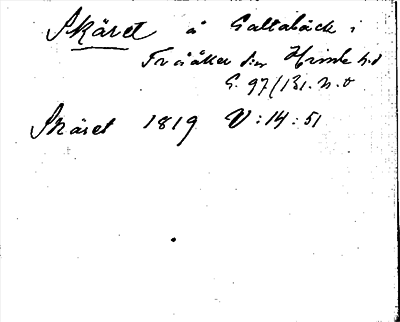 Skäret å Galtabäck i
Träslöv sn Himle hd
G. 97/131. N.O
Skäret 1819 V:14:51